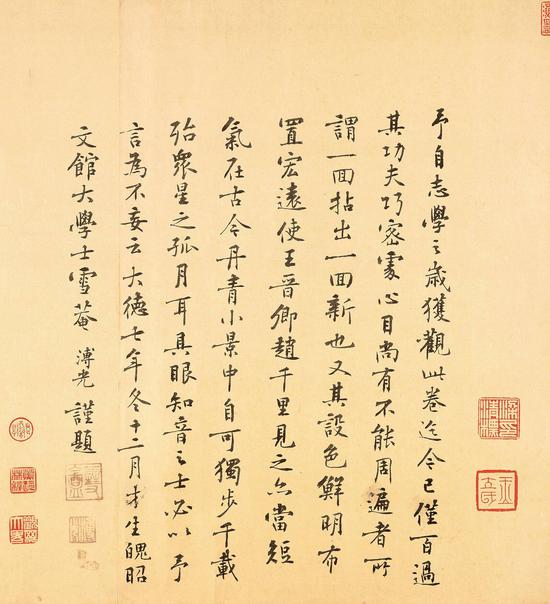 予自志學之歲獲觀此卷迄今已僅百過
其功夫巧密處心目尚有不能周遍者所
謂一面拈出一面新也又其設色鮮明布
置宏遠使王晉卿趙千里見之亦當短
氣在古今丹青小景中自可獨步千載
殆眾星之孤月耳具眼知音之士必以予
言為不妄云大德七年冬十二月才生魄昭
文館大學士雪菴溥光謹題